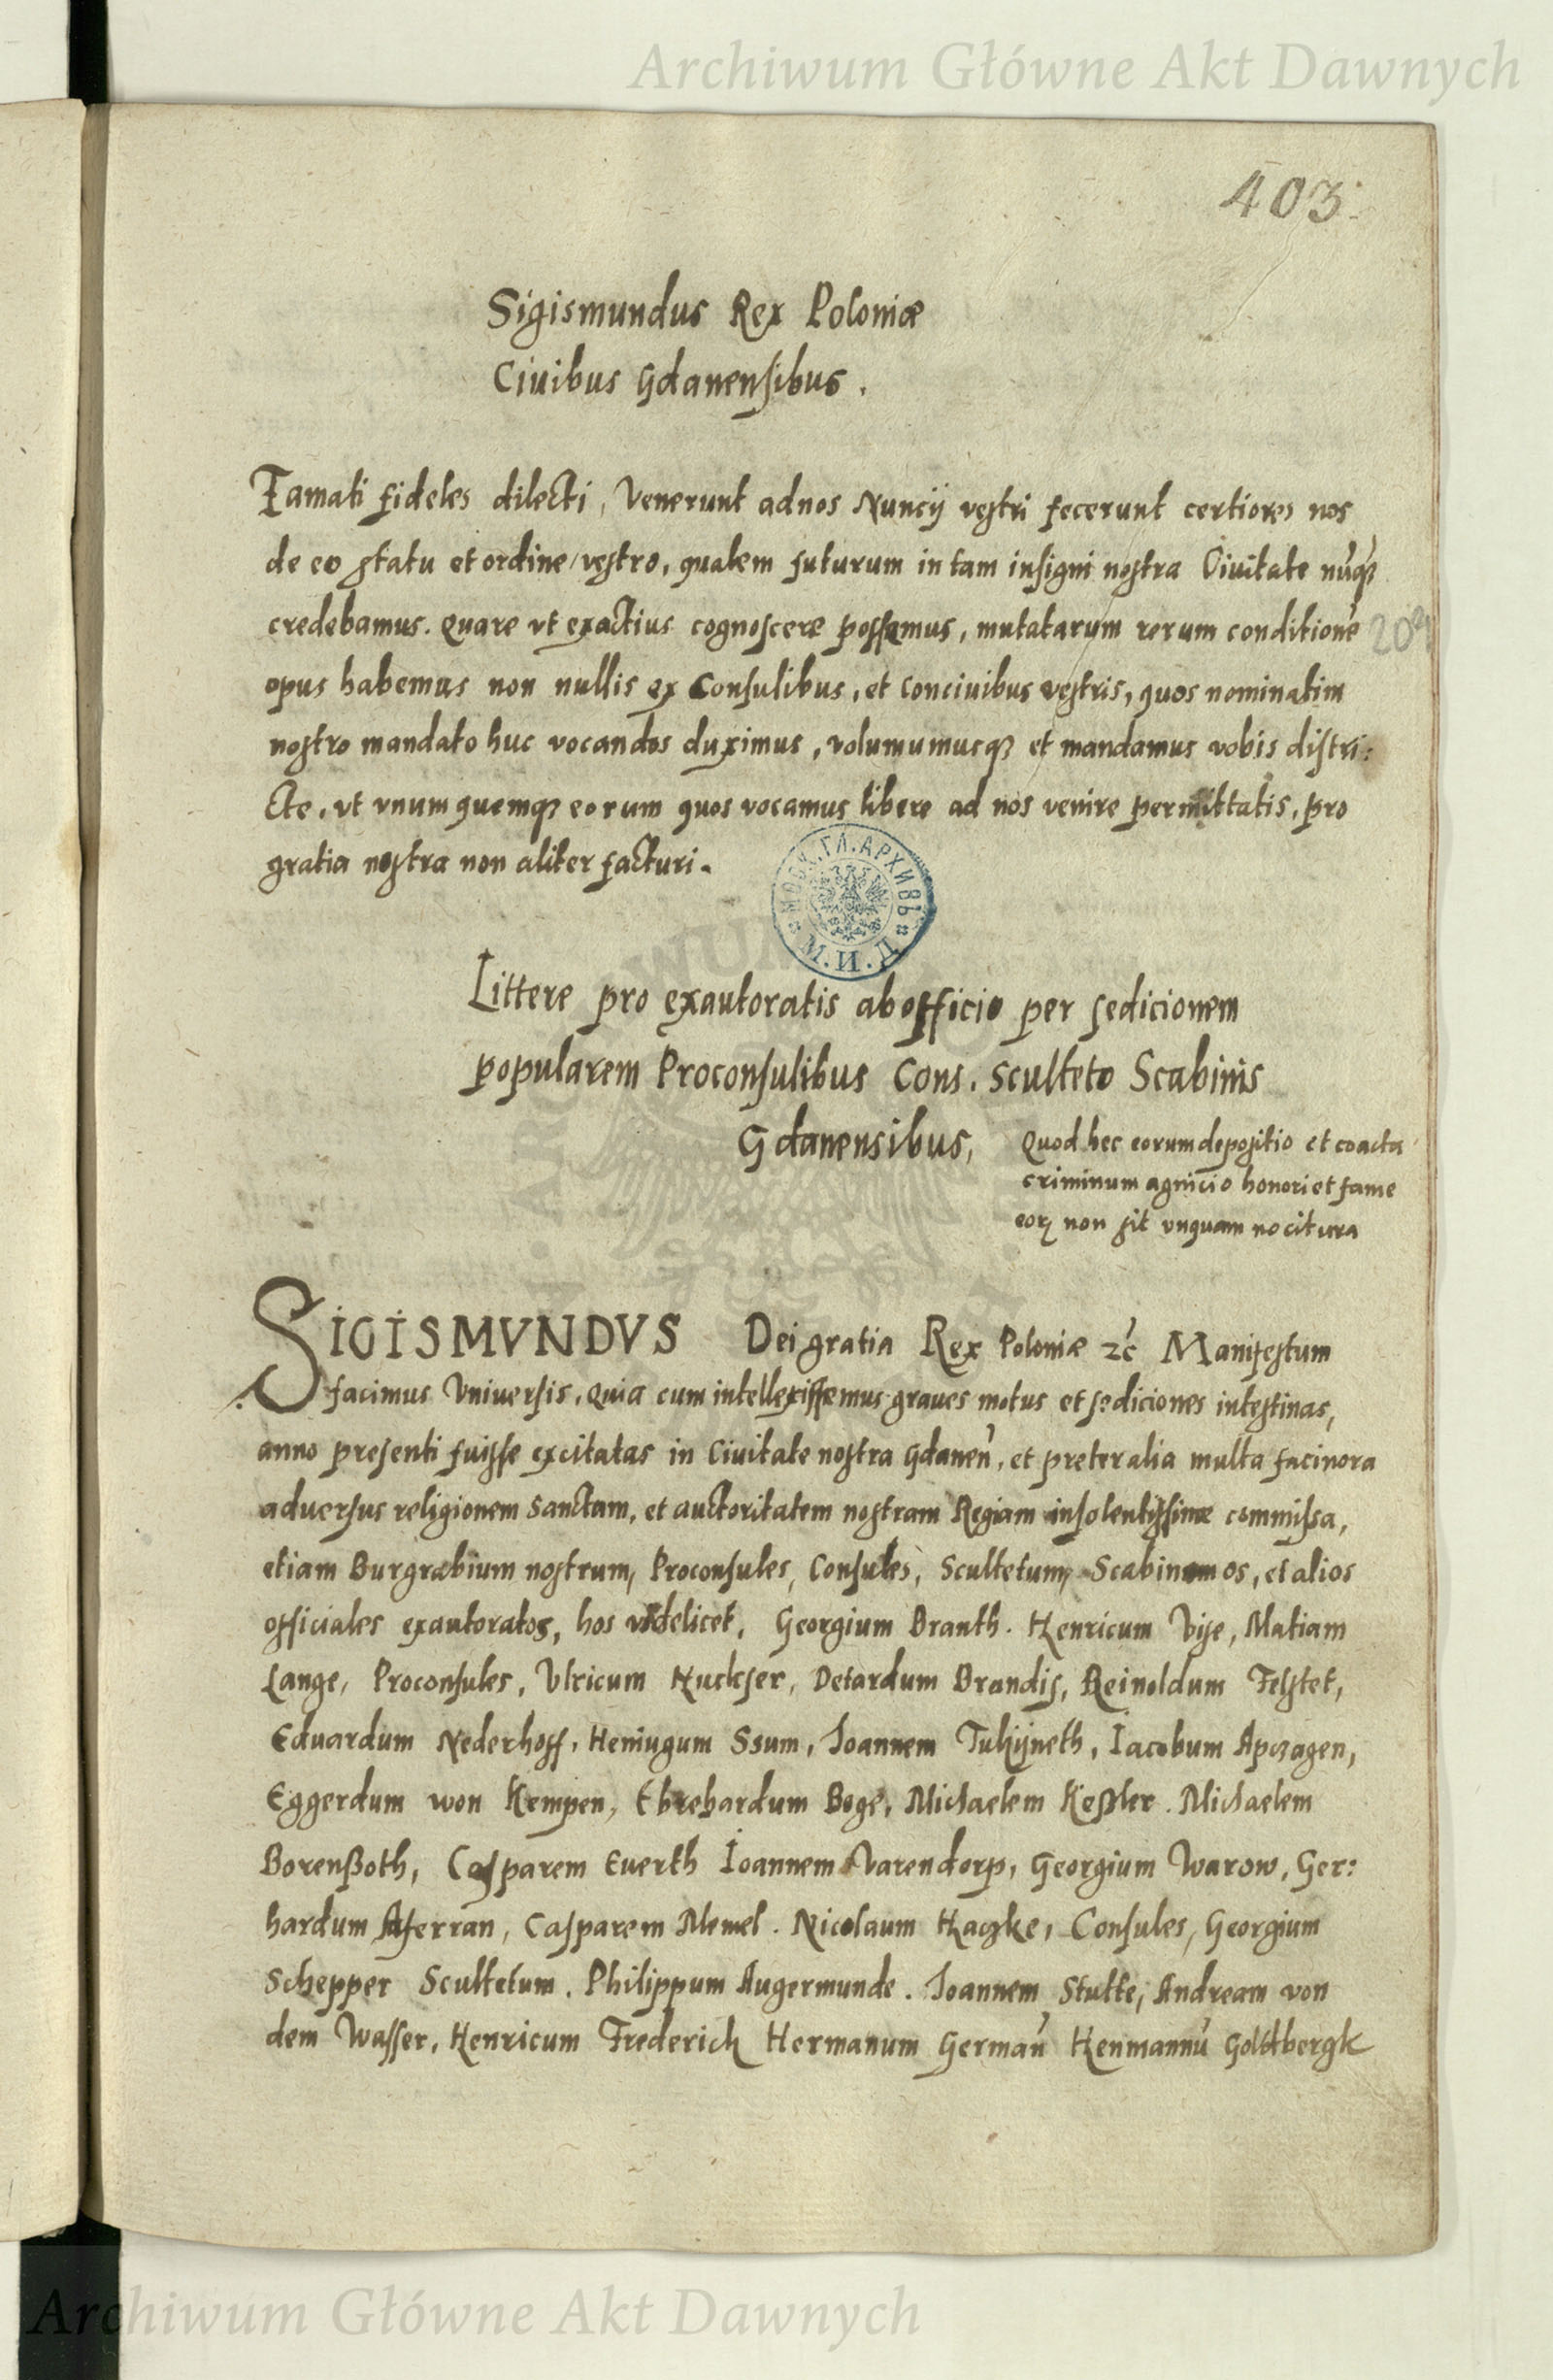 Archiwum Główne Akt Dawnych
403.
Sigismundus Rex Poloniæ
Ciuibus Gdanensibus.
Famati fideles dilecti, Venerunt ad nos Nuncij vestri fecerunt certiores nos
de eo statu et ordine vestro, qualem futurum in tam insigni nostra Ciuitate nu̅q̃
credebamus. Quare vt exactius cognoscere possemus, mutatarum rerum conditione̅
opus habemus non nullis ex Consulibus, et conciuibus vestris, quos nominatim
nostro mandato huc vocandos duximus, volumumusq; et mandamus vobis distri:
cte, vt vnum quemq; eorum quos vocamus libere ad nos venire permittatis, pro
gratia nostra non aliter facturi.
МОСК. ГЛ. АРХИВЪ
М.И.Д.
Littere pro exautoratis ab officio per sedicionem
popularem Proconsulibus Cons. Sculteto Scabinis
Gdanensibus,
Quod hec eorum depositio et coacta
criminum agnicio honori et fame
eorꝝ non sit vnquam nocitura
SIGISMVNDVS Dei gratia Rex Poloniæ zc̃ Manifestum
facimus Vniuersis, Quia cum intellexissemus graues motus et sediciones intestinas,
anno presenti fuisse excitatas in Ciuitate nostra Gdanen̅, et preter alia multa facinora
aduersus religionem sanctam, et auctoritatem nostram Regiam insolentissime commissa,
etiam Burgrabium nostrum, Proconsules, Consules, Scultetum, Scabinos, et alios
officiales exautoratos, hos videlicet, Georgium Branth. Henricum Vise, Matiam
Lange, Proconsules, Vlricum Huckser, Detardum Brandis, Reinoldum Felstet,
Eduardum Nederhoff, Heniugum Ssum, Joannem Tuhijneth, Iacobum Apczagen,
Eggerdum won Kempen, Ebrehardum Boge, Michaelem Keßler. Michaelem
Borenßoth, Casparem Euerth Ioannem Varendorp, Georgium Warow, Ger:
hardum Aserran, Casparem Memel. Nicolaum Haczke, Consules, Georgium
Schepper Scultetum. Philippum Augermunde. Joannem Stutte, Andream von
dem Wasser, Henricum Frederich Hermanum German̅ Henmannu̅ Goldtbergk
Archiwum Główne Akt Dawnych